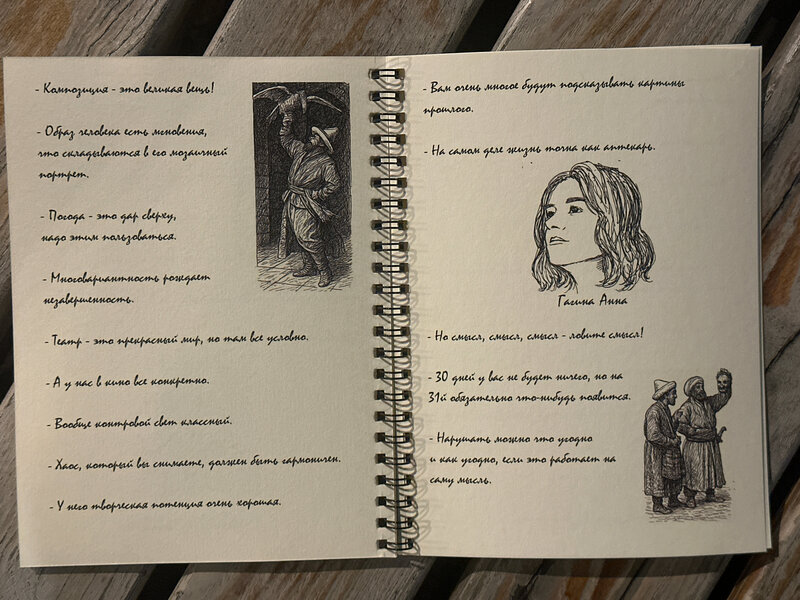 - Композиция - это великая вещь!
- Образ человека есть мгновения,
что складываются в его мозаичный
портрет.
- Погода - это дар сверху,
надо этим пользоваться.
- Многовариантность рождает
незавершенность.
- Театр - это прекрасный мир, но там все условно.
- А у нас в кино все конкретно.
- Вообще контровой свет классный.
- Хаос, который вы снимаете, должен быть гармоничен.
- У него творческая потенция очень хорошая.
- Вам очень многое будут подсказывать картины
прошлого.
- На самом деле жизнь точна как аптекарь.
Гагина Анна
- Но смысл, смысл, смысл - ловите смысл!
- 30 дней у вас не будет ничего, но на
31й обязательно что-нибудь появится.
- Нарушать можно что угодно
и как угодно, если это работает на
саму мысль.